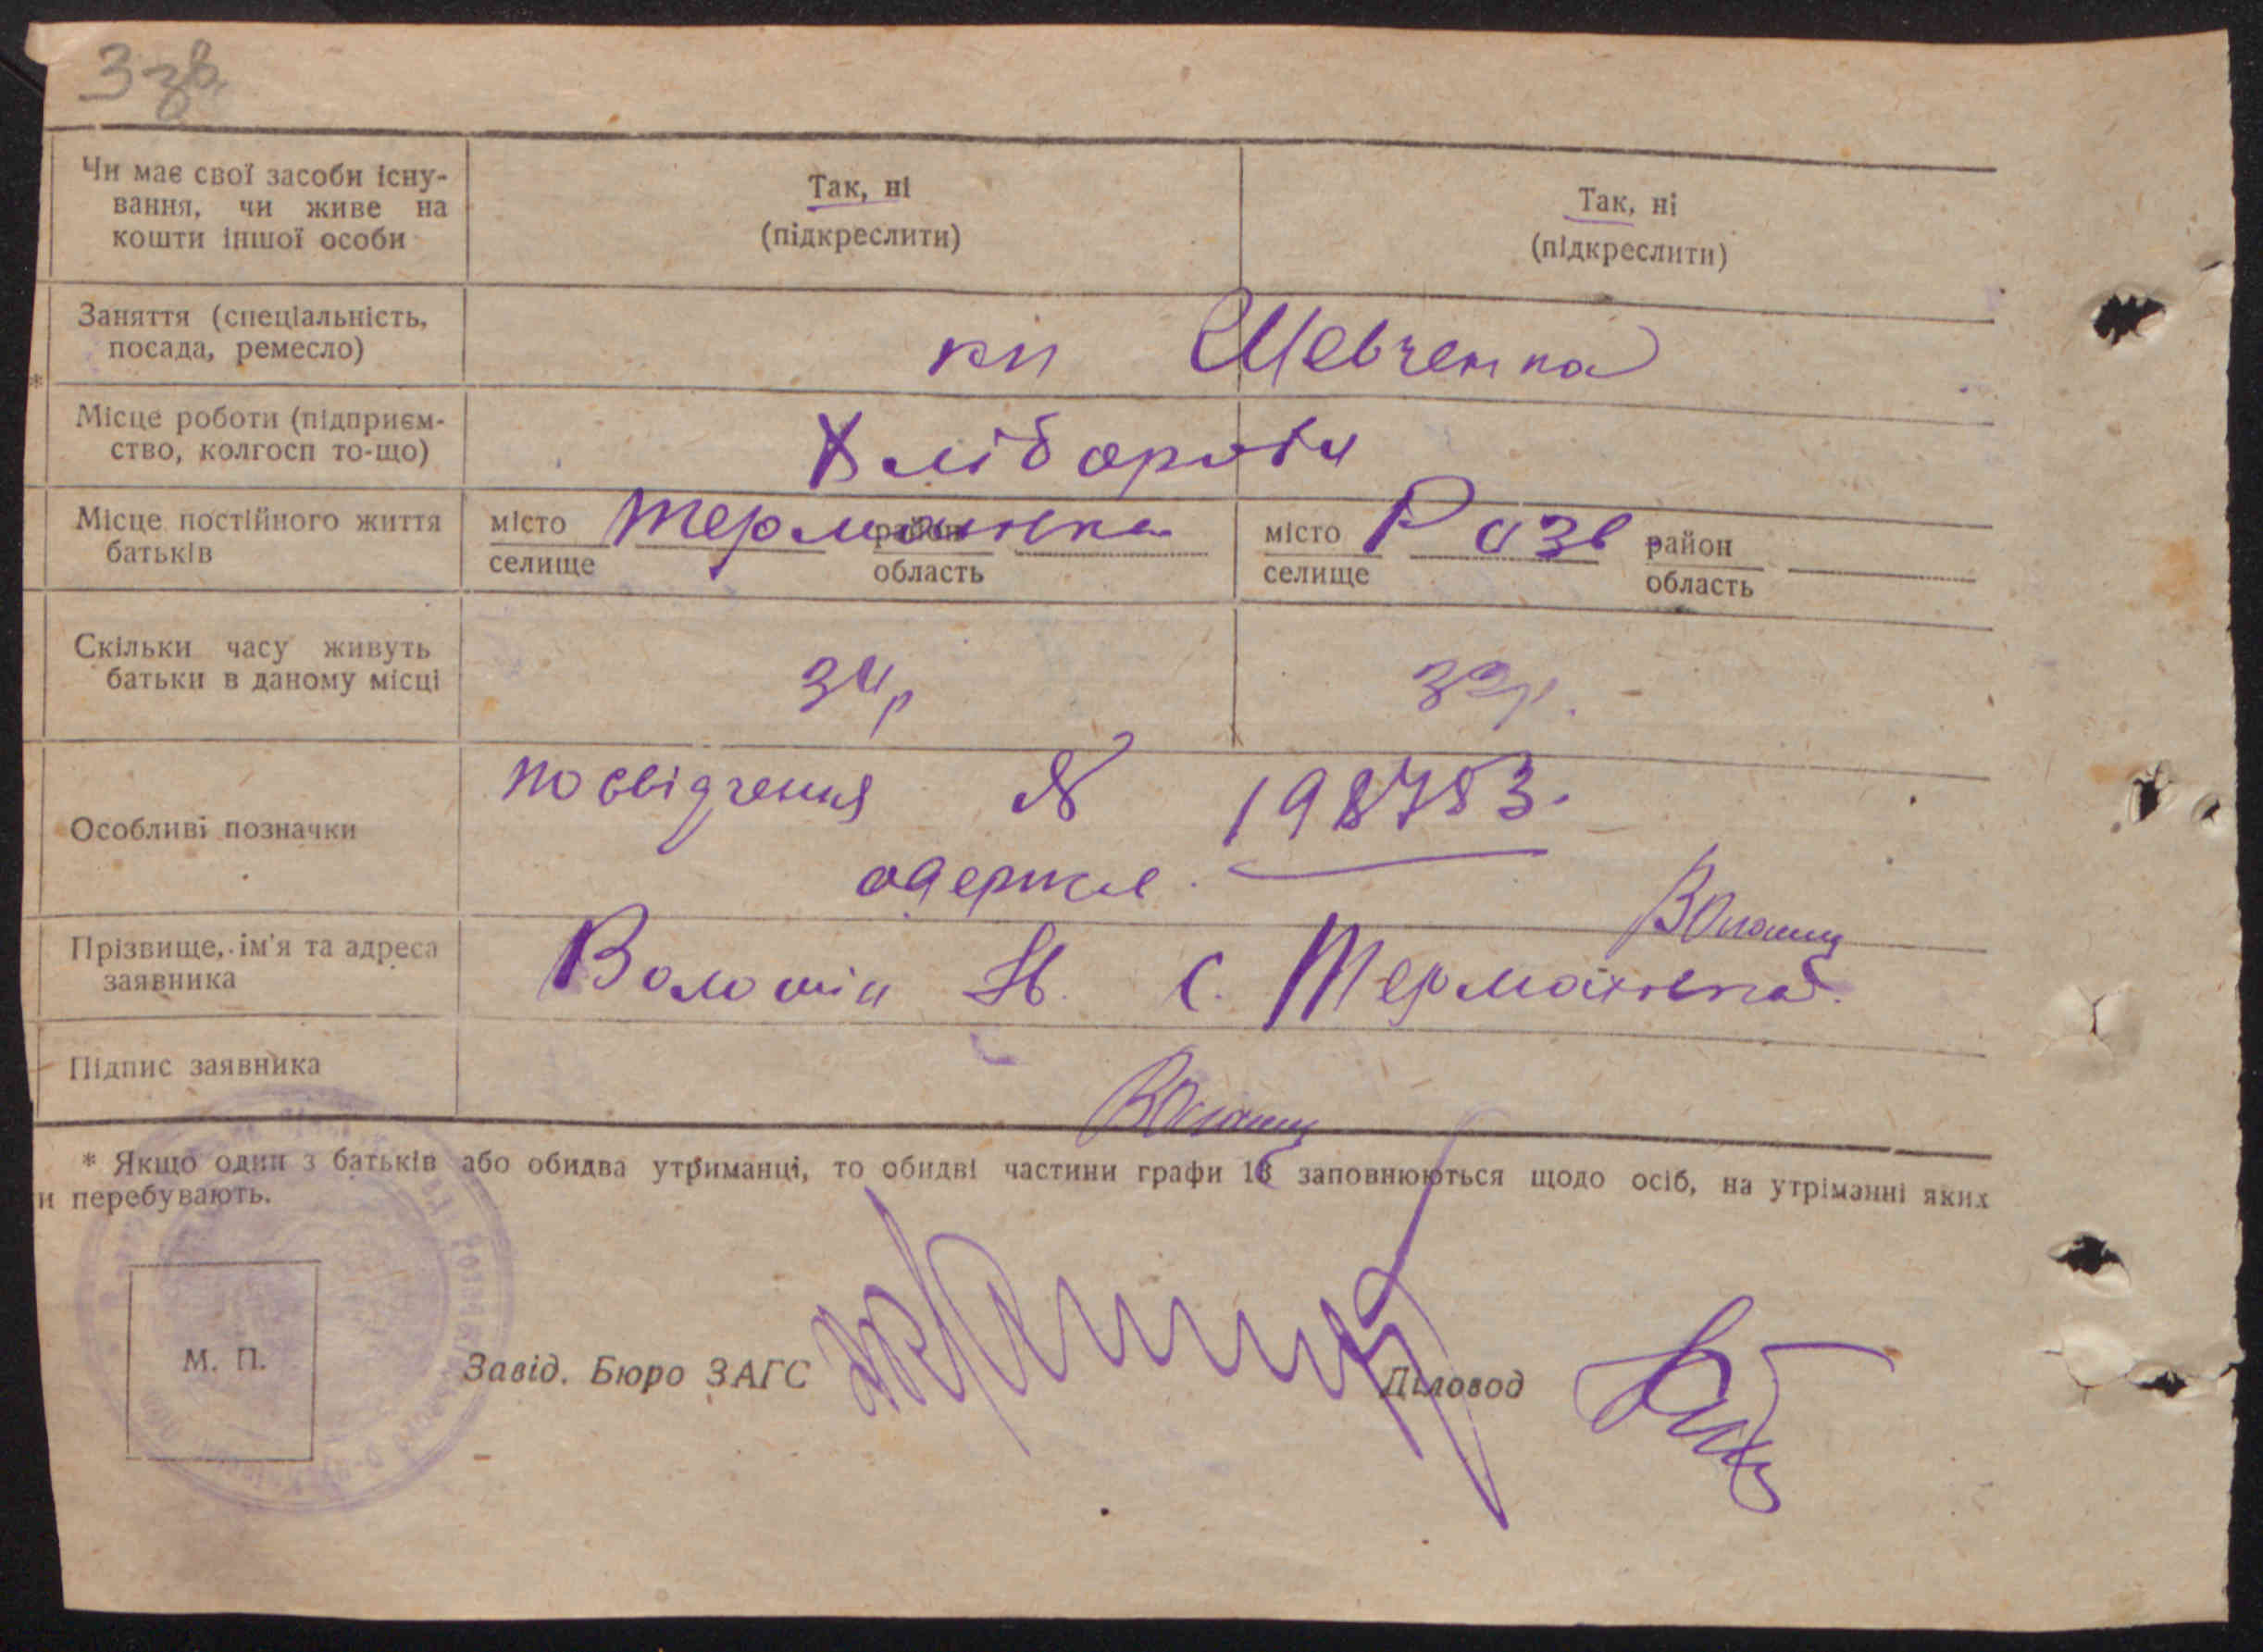 3 зв.
Чи має свої засоби існу-
вання, чи живе на
кошти іншої особи
Так, ні
(підкреслити)
Так, ні
(підкреслити)
Заняття (спеціальність,
посада, ремесло)
кп Шевченка
*
Місце роботи (підприєм-
ство, колгосп то-що)
Хлібороби
Місце постійного життя
батьків
місто
селище
Термахівка
район
область
місто
селище
Розв
район
область
Скільки часу живуть
батьки в даному місці
34р
33р.
Особливі позначки
посвідчення № 198753.
одержав.
Прізвище, ім'я та адреса
заявника
Волошін Я. с. Термахівка.
Підпис заявника
* Якщо один з батьків або обидва утриманці, то обидві частини графи 18 заповнюються щодо осіб, на утріманні яких
и перебувають.
М. П.
Завід. Бюро ЗАГС
Діловод